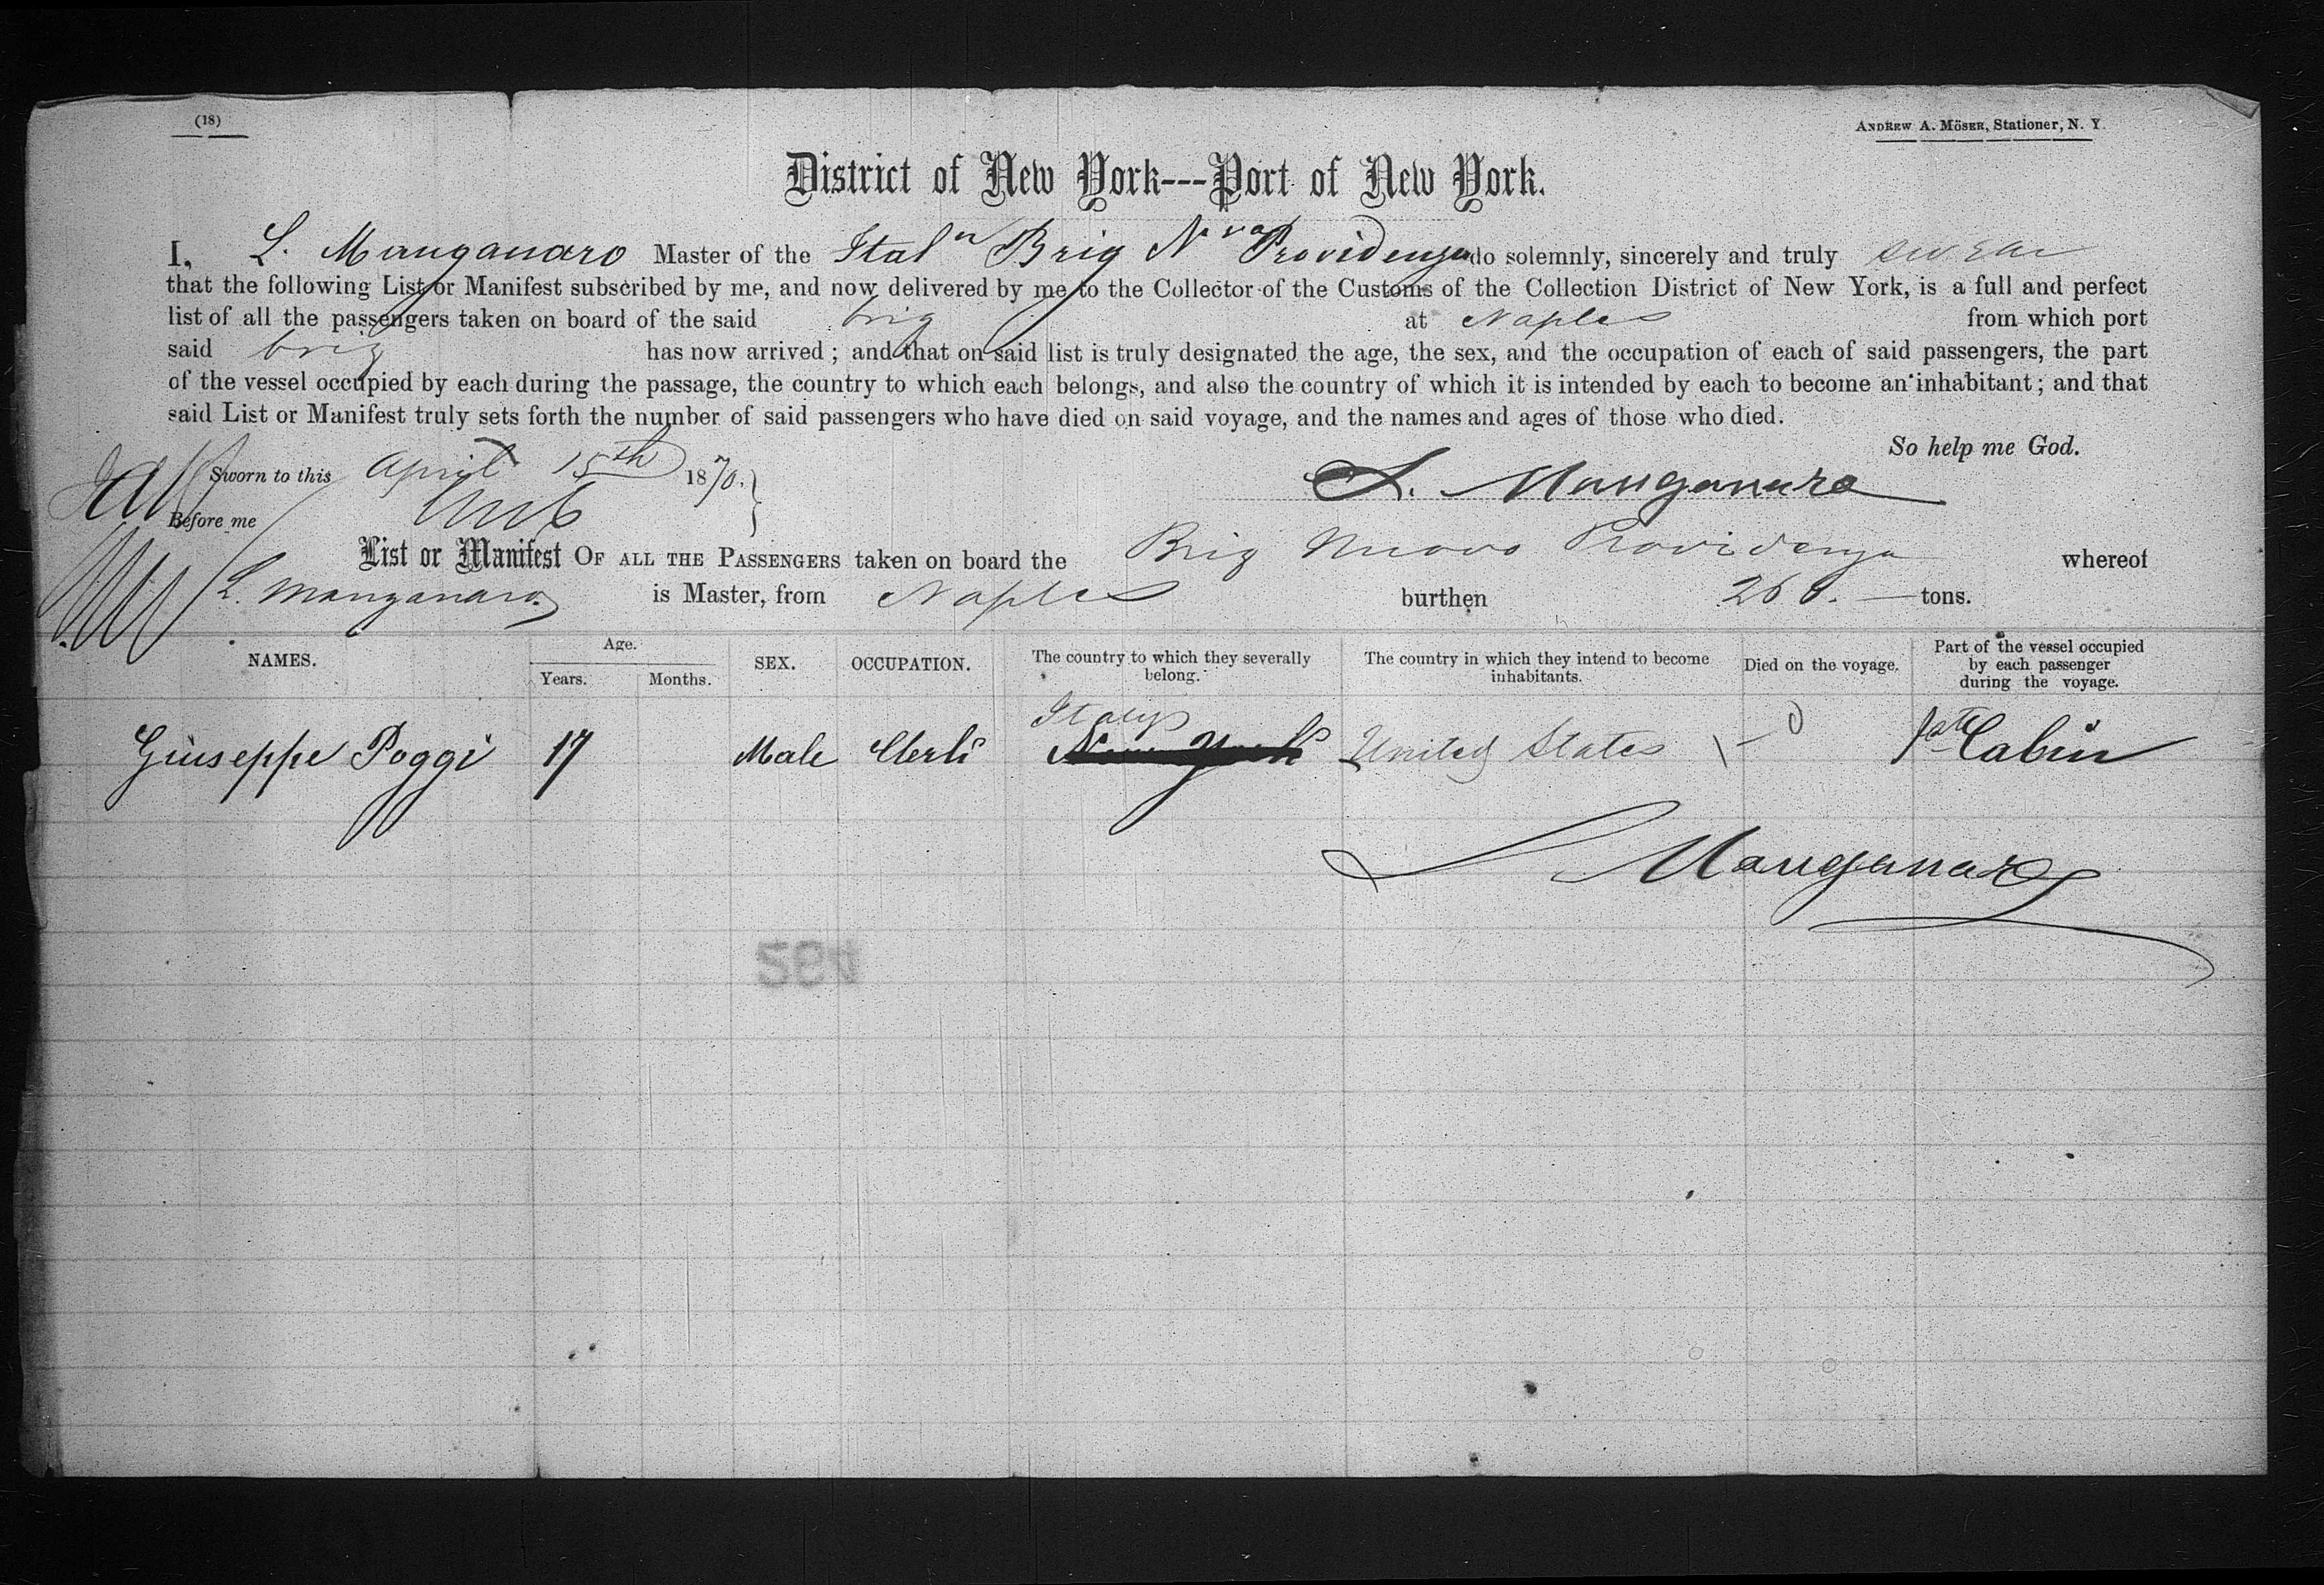 (18)
ANDREW A. MÖSER, Stationer, N. Y.
District of New York---Port of New York.
I, L. Manganaro Master of the Italn Brig Nva Providenza do solemnly, sincerely and truly swear
that the following List or Manifest subscribed by me, and now delivered by me to the Collector of the Customs of the Collection District of New York, is a full and perfect
list of all the passengers taken on board of the said brig at Naples from which port
said brig has now arrived; and that on said list is truly designated the age, the sex, and the occupation of each of said passengers, the part
of the vessel occupied by each during the passage, the country to which each belongs, and also the country of which it is intended by each to become an inhabitant; and that
said List or Manifest truly sets forth the number of said passengers who have died on said voyage, and the names and ages of those who died.
So help me God.
Sworn to this April 15th 1870.
L. Manganaro
Before me
List or Manifest OF ALL THE PASSENGERS taken on board the Brig Nuova Providenza whereof
L. Manganaro is Master, from Naples burthen tons.
NAMES. Age. Years. Months. SEX. OCCUPATION. The country to which they severally belong. The country in which they intend to become inhabitants. Died on the voyage. Part of the vessel occupied by each passenger during the voyage.
Italy
Giuseppe Poggi 17 Male Clerk New York United States 0 1st Cabin
L Manganaro